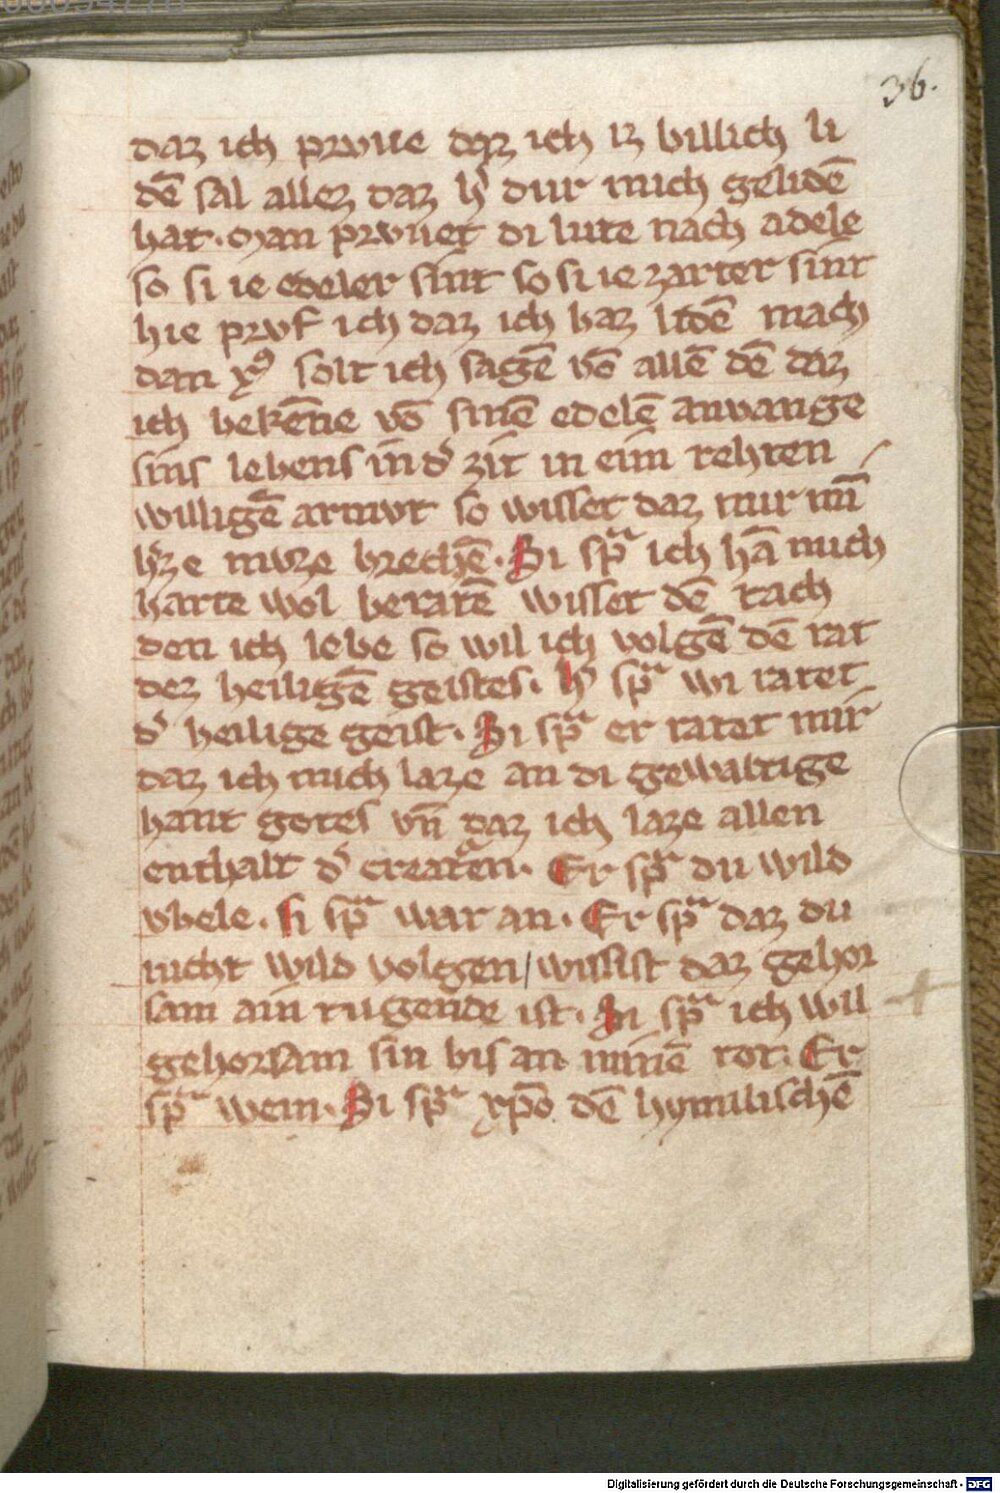 36.
daz ich prvue daz ich iz billich li
dē sal allez daz h͛ dur mich gelidē
hat. Man prvuet di lute nach adele
so si ie edeler sint so si ie zarter sint
hie prvf ich daz ich baz lidē mach
dan xꝰ solt ich sagē vō allē dē daz
ich bekēne vō sinē edelē anvange
sins lebens in d͛ zit in eim rehten
willigē armvt so wisset daz mir mī
h͛ze mvze brechē. Si spͣ ich hā mich
harte wol beratē wisset dē rach
den ich lebe so wil ich volgē dē rat
dez heiligē geistes. h͛ spͣ wi ratet
d͛ heilige geist. Si spͣ er ratet mir
daz ich mich laze an di gewaltige
hant gotes vn̄ daz ich laze allen
enthalt d͛ creatͣen. Er spͣ du wild
vbele. si spͣ war an. Er spͣ daz du
nicht wild volgen/wissist daz gehor
sam ain tugende ist. Si spͣ ich wil
gehorsam sin bis an minē tot. Er
spͣ wem. Si spͣ xp̄o dē hymilischē
Digitalisierung gefördert durch die Deutsche Forschungsgemeinschaft - DFG